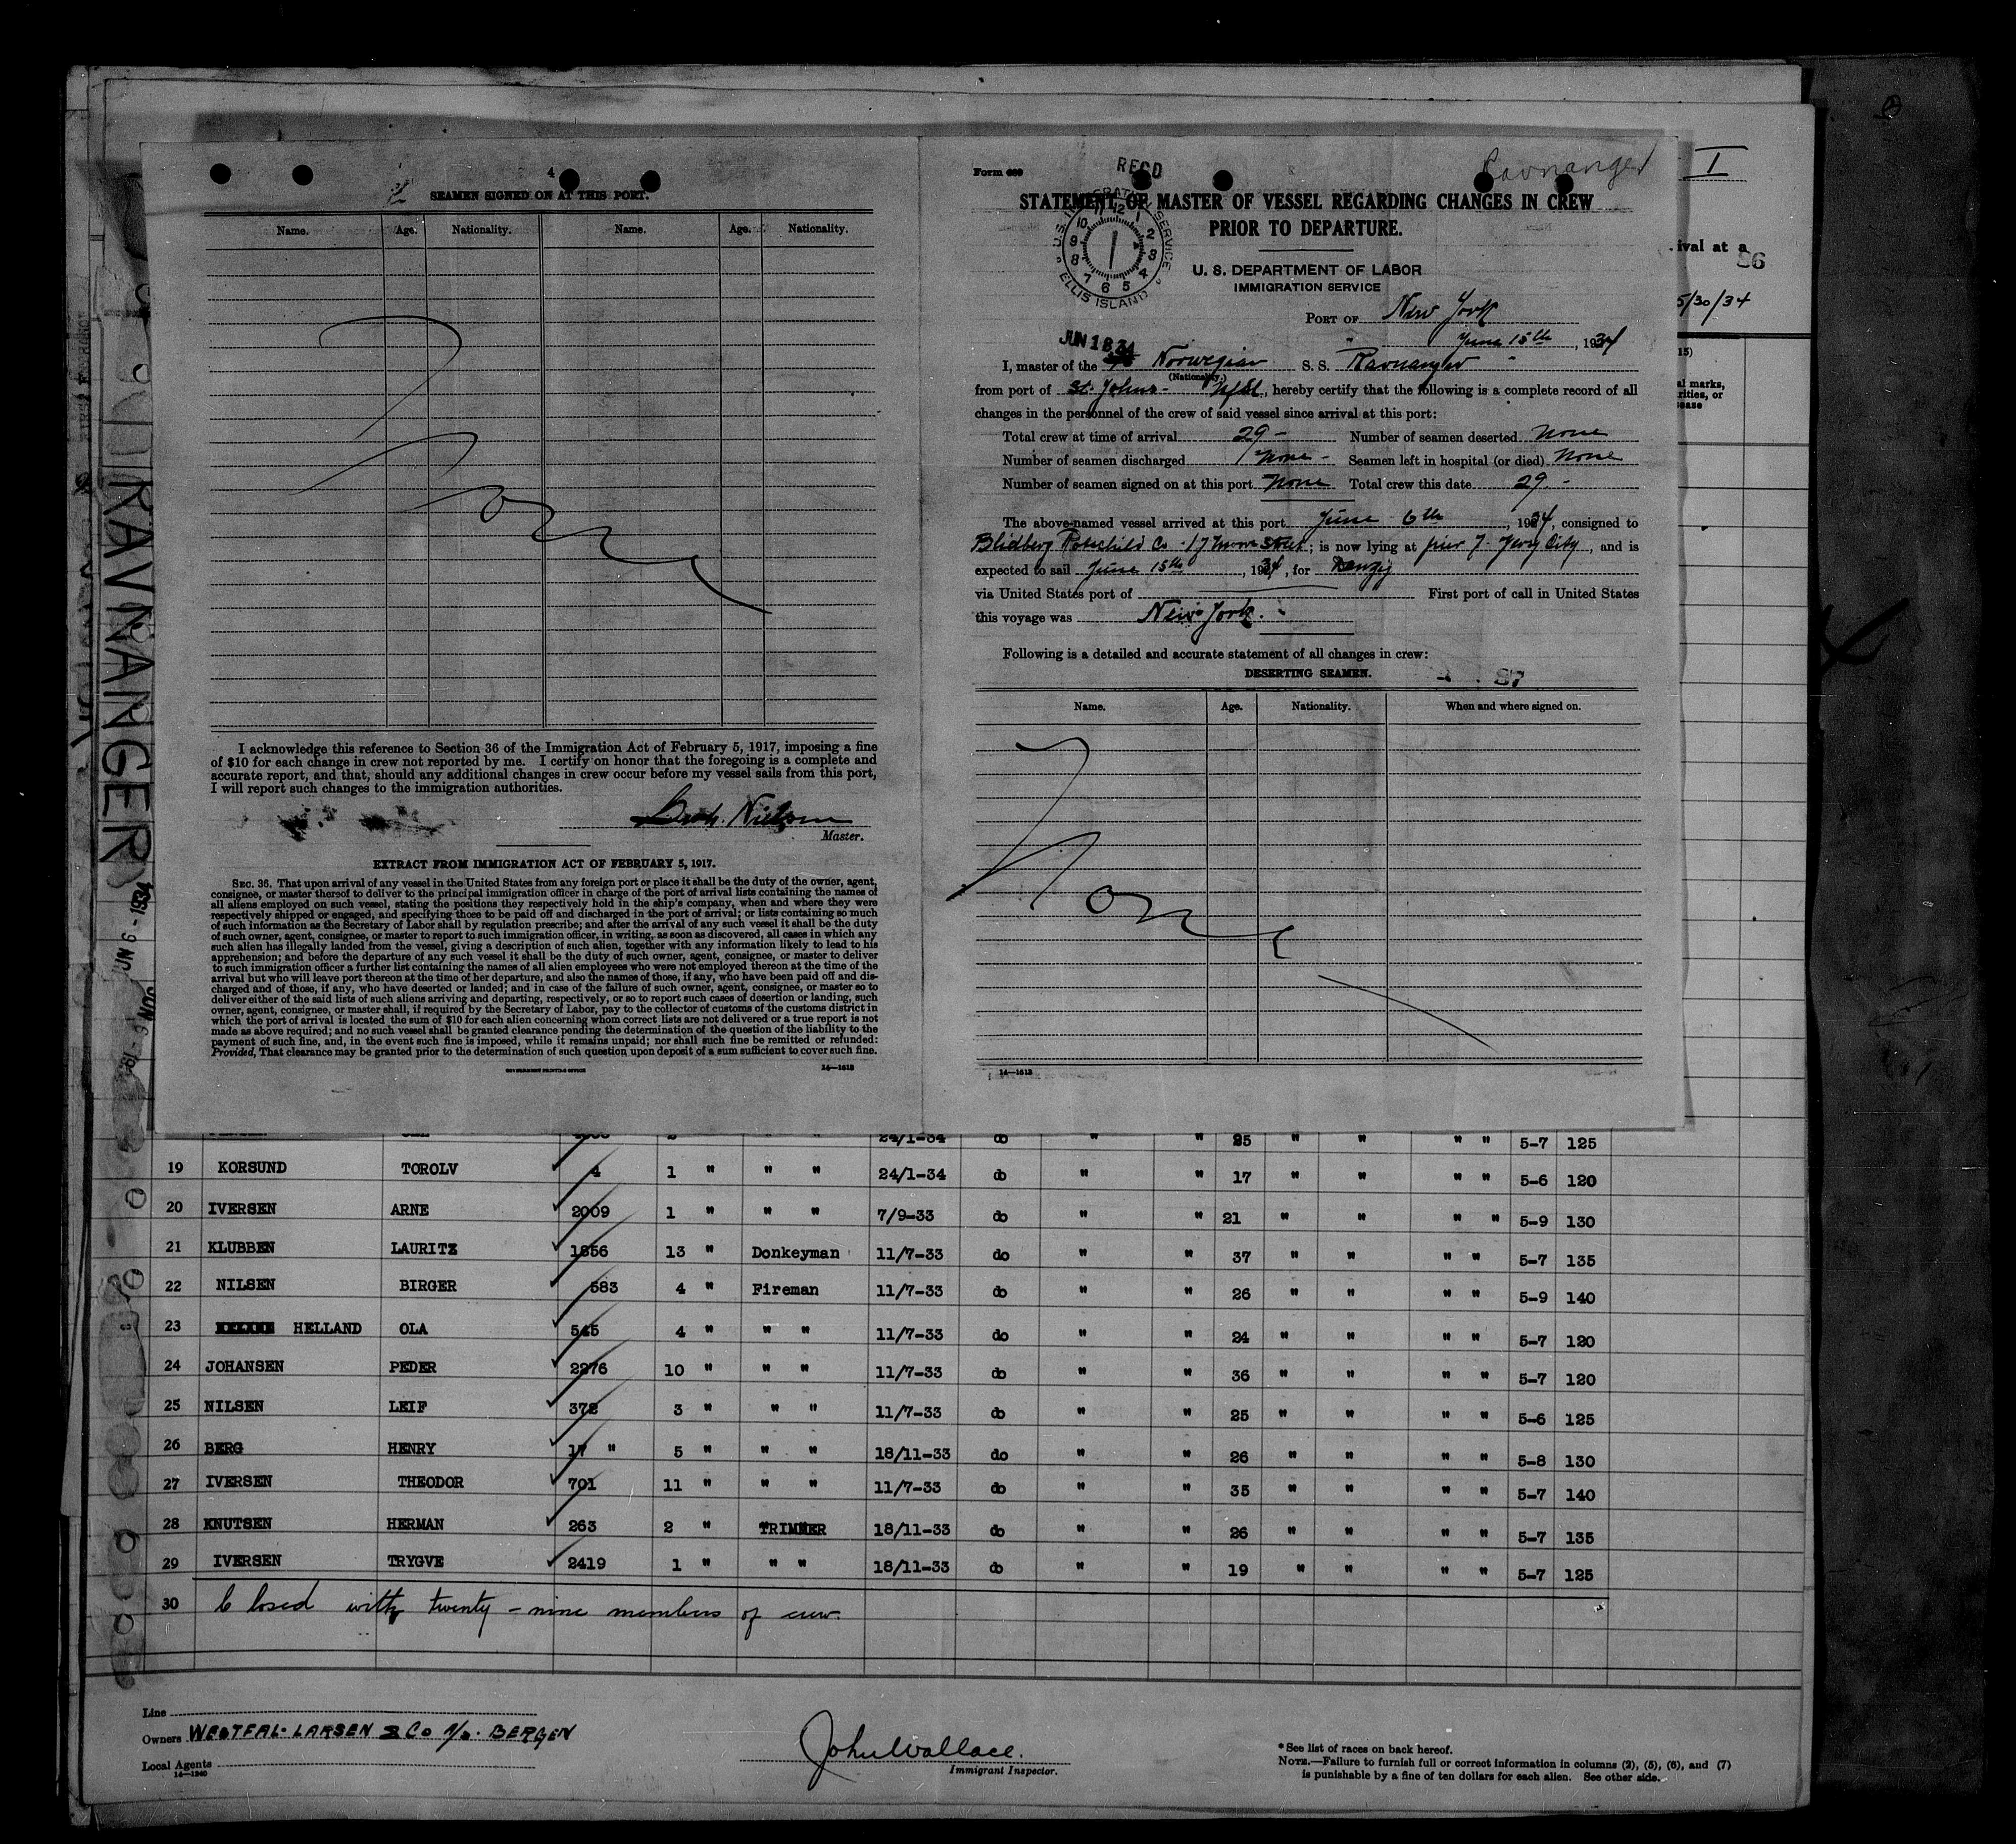 4
SEAMEN SIGNED ON AT THIS PORT.
Name. Age. Nationality. Name. Age. Nationality.
None
I acknowledge this reference to Section 36 of the Immigration Act of February 5, 1917, imposing a fine
of $10 for each change in crew not reported by me. I certify on honor that the foregoing is a complete and
accurate report, and that, should any additional changes in crew occur before my vessel sails from this port,
I will report such changes to the immigration authorities.
Nielsen
Master.
EXTRACT FROM IMMIGRATION ACT OF FEBRUARY 5, 1917.
SEC. 36. That upon arrival of any vessel in the United States from any foreign port or place it shall be the duty of the owner, agent,
consignee, or master thereof to deliver to the principal immigration officer in charge of the port of arrival lists containing the names of
all aliens employed on such vessel, stating the positions they respectively hold in the ship's company, when and where they were
respectively shipped or engaged, and specifying those to be paid off and discharged in the port of arrival; or lists containing so much
of such information as the Secretary of Labor shall by regulation prescribe; and after the arrival of any such vessel it shall be the duty
of such owner, agent, consignee, or master to report to such immigration officer, in writing, as soon as discovered, all cases in which any
such alien has illegally landed from the vessel, giving a description of such alien, together with any information likely to lead to his
apprehension; and before the departure of any such vessel it shall be the duty of such owner, agent, consignee, or master to deliver
to such immigration officer a further list containing the names of all alien employees who were not employed thereon at the time of the
arrival but who will leave port thereon at the time of her departure, and also the names of those, if any, who have been paid off and dis-
charged and of those, if any, who have deserted or landed; and in case of the failure of such owner, agent, consignee, or master so to
deliver either of the said lists of such aliens arriving and departing, respectively, or so to report such cases of desertion or landing, such
owner, agent, consignee, or master shall, if required by the Secretary of Labor, pay to the collector of customs of the customs district in
which the port of arrival is located the sum of $10 for each alien concerning whom correct lists are not delivered or a true report is not
made as above required; and no such vessel shall be granted clearance pending the determination of the question of the liability to the
payment of such fine, and, in the event such fine is imposed, while it remains unpaid; nor shall such fine be remitted or refunded:
Provided, That clearance may be granted prior to the determination of such question upon deposit of a sum sufficient to cover such fine.
GOVERNMENT PRINTING OFFICE 14—1613
Form 689 REC'D Ravnanger
STATEMENT OF MASTER OF VESSEL REGARDING CHANGES IN CREW
PRIOR TO DEPARTURE.
U. S. IMMIGRATION SERVICE
ELLIS ISLAND
12 1 2 3 4 5 6 7 8 9 10 11
U. S. DEPARTMENT OF LABOR
IMMIGRATION SERVICE
PORT OF New York
JUN 18 34
June 15th, 1934
I, master of the Norwegian S. S. Ravnanger
(Nationality.)
from port of St. Johns - Nfld, hereby certify that the following is a complete record of all
changes in the personnel of the crew of said vessel since arrival at this port:
Total crew at time of arrival 29 - Number of seamen deserted None
Number of seamen discharged None - Seamen left in hospital (or died) None
Number of seamen signed on at this port None Total crew this date 29 -
The above-named vessel arrived at this port June 6th, 1934, consigned to
Blidberg Rothchild Co. 17 Street; is now lying at pier 7 Jersey City, and is
expected to sail June 15th, 1934, for Danzig
via United States port of First port of call in United States
this voyage was New York.
Following is a detailed and accurate statement of all changes in crew:
DESERTING SEAMEN. 87
Name. Age. Nationality. When and where signed on.
None
14—1613
I
ival at a
86
5/30/34
15)
al marks,
rities, or
ease
RAVNANGER
JUN 6 - 1934
24/1-34 do " " 25 " " " " 5-7 125
19 KORSUND TOROLV 4 1 " " " 24/1-34 do " " 17 " " " " 5-6 120
20 IVERSEN ARNE 2009 1 " " " 7/9-33 do " " 21 " " " " 5-9 130
21 KLUBBEN LAURITZ 1856 13 " Donkeyman 11/7-33 do " " 37 " " " " 5-7 135
22 NILSEN BIRGER 583 4 " Fireman 11/7-33 do " " 26 " " " " 5-9 140
23 HELLAND OLA 545 4 " " " 11/7-33 do " " 24 " " " " 5-7 120
24 JOHANSEN PEDER 2276 10 " " " 11/7-33 do " " 36 " " " " 5-7 120
25 NILSEN LEIF 372 3 " " " 11/7-33 do " " 25 " " " " 5-6 125
26 BERG HENRY 17 " 5 " " " 18/11-33 do " " 26 " " " " 5-8 130
27 IVERSEN THEODOR 701 11 " " " 11/7-33 do " " 35 " " " " 5-7 140
28 KNUTSEN HERMAN 263 2 " TRIMMER 18/11-33 do " " 26 " " " " 5-7 135
29 IVERSEN TRYGVE 2419 1 " " " 18/11-33 do " " 19 " " " " 5-7 125
30 Closed with twenty - nine members of crew.
Line
Owners WESTFAL-LARSEN & Co A/S. BERGEN
Local Agents
14—1240
John Wallace.
Immigrant Inspector.
*See list of races on back hereof.
NOTE.—Failure to furnish full or correct information in columns (2), (5), (6), and (7)
is punishable by a fine of ten dollars for each alien. See other side.